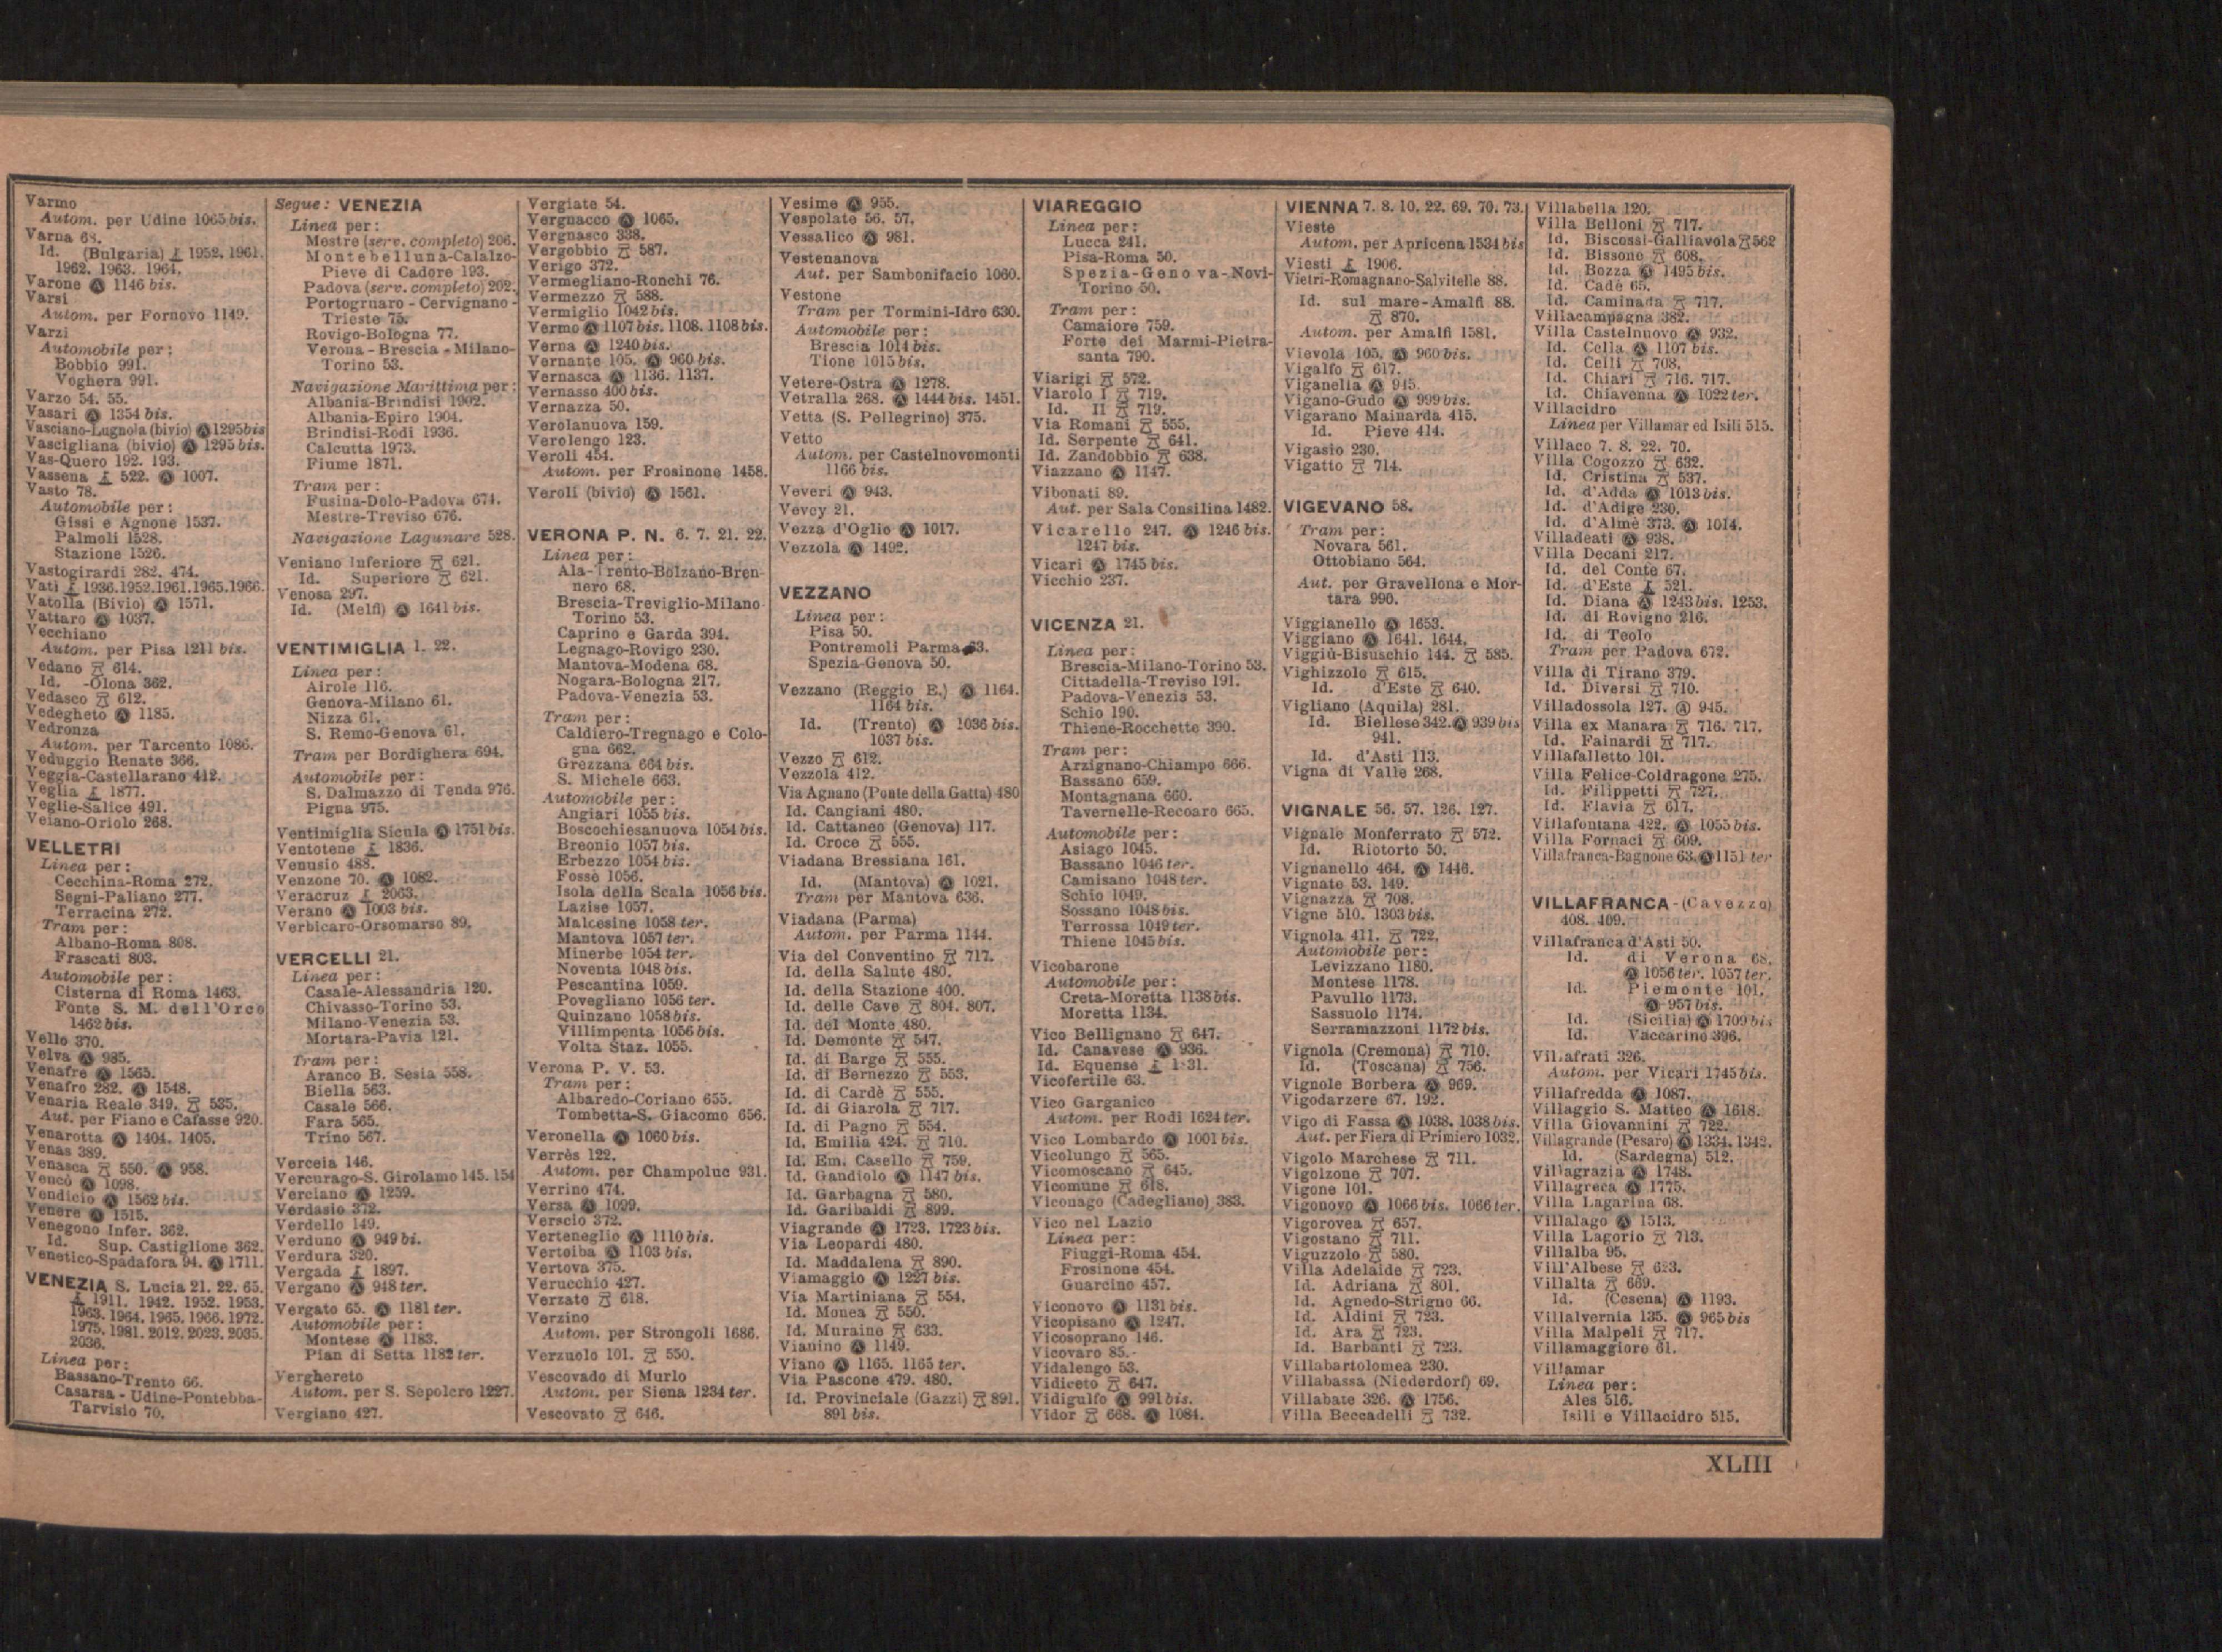 Varmo
Autom. per Udine 1065 bis.
Varna 68.
Id. (Bulgaria) 1952. 1961.
1962. 1963. 1964.
Varone Ⓐ 1146 bis.
Varsi
Autom. per Fornovo 1149.
Varzi
Automobile per:
Bobbio 991.
Voghera 991.
Varzo 54. 55.
Vasari Ⓐ 1354 bis.
Vasciano-Lugnola (bivio) Ⓐ 1295 bis
Vascigliana (bivio) Ⓐ 1295 bis.
Vas-Quero 192. 193.
Vassena 522. Ⓐ 1007.
Vasto 78.
Automobile per:
Gissi e Agnone 1537.
Palmoli 1528.
Stazione 1526.
Vastogirardi 282. 474.
Vati 1936.1952.1961.1965.1966.
Vatolla (Bivio) Ⓐ 1571.
Vattaro Ⓐ 1037.
Vecchiano
Autom. per Pisa 1211 bis.
Vedano 614.
Id. -Olona 362.
Vedasco 612.
Vedegheto Ⓐ 1185.
Vedronza
Autom. per Tarcento 1086.
Veduggio Renate 366.
Veggia-Castellarano 412.
Veglia 1877.
Veglie-Salice 491.
Veiano-Oriolo 268.
VELLETRI
Linea per:
Cecchina-Roma 272.
Segni-Paliano 277.
Terracina 272.
Tram per:
Albano-Roma 808.
Frascati 803.
Automobile per:
Cisterna di Roma 1463.
Fonte S. M. dell'Orco
1462 bis.
Vello 370.
Velva Ⓐ 985.
Venafre Ⓐ 1565.
Venafro 282. Ⓐ 1548.
Venaria Reale 349. 535.
Aut. per Fiano e Cafasse 920.
Venarotta Ⓐ 1404. 1405.
Venas 389.
Venasca 550. Ⓐ 958.
Vencò Ⓐ 1098.
Vendicio Ⓐ 1562 bis.
Venere Ⓐ 1515.
Venegono Infer. 362.
Id. Sup. Castiglione 362.
Venetico-Spadafora 94. Ⓐ 1711.
VENEZIA S. Lucia 21. 22. 65.
1911. 1942. 1952. 1953.
1963. 1964. 1965. 1966. 1972.
1975. 1981. 2012. 2023. 2035.
2036.
Linea per:
Bassano-Trento 66.
Casarsa - Udine-Pontebba-
Tarvisio 70.
Segue: VENEZIA
Linea per:
Mestre (serv. completo) 206.
Montebelluna-Calalzo-
Pieve di Cadore 193.
Padova (serv. completo) 202.
Portogruaro - Cervignano -
Trieste 75.
Rovigo-Bologna 77.
Verona - Brescia - Milano-
Torino 53.
Navigazione Marittima per:
Albania-Brindisi 1902.
Albania-Epiro 1904.
Brindisi-Rodi 1936.
Calcutta 1973.
Fiume 1871.
Tram per:
Fusina-Dolo-Padova 674.
Mestre-Treviso 676.
Navigazione Lagunare 528.
Veniano Inferiore 621.
Id. Superiore 621.
Venosa 297.
Id. (Melfi) Ⓐ 1641 bis.
VENTIMIGLIA 1. 22.
Linea per:
Airole 116.
Genova-Milano 61.
Nizza 61.
S. Remo-Genova 61.
Tram per Bordighera 694.
Automobile per:
S. Dalmazzo di Tenda 976.
Pigna 975.
Ventimiglia Sicula Ⓐ 1751 bis.
Ventotene 1836.
Venusio 488.
Venzone 70. Ⓐ 1082.
Veracruz 2063.
Verano Ⓐ 1003 bis.
Verbicaro-Orsomarso 89.
VERCELLI 21.
Linea per:
Casale-Alessandria 120.
Chivasso-Torino 53.
Milano-Venezia 53.
Mortara-Pavia 121.
Tram per:
Aranco B. Sesia 558.
Biella 563.
Casale 566.
Fara 565.
Trino 567.
Verceia 146.
Vercurago-S. Girolamo 145. 154
Verciano Ⓐ 1259.
Verdasio 372.
Verdello 149.
Verduno Ⓐ 949 bi.
Verdura 320.
Vergada 1897.
Vergano Ⓐ 948 ter.
Vergato 65. Ⓐ 1181 ter.
Automobile per:
Montese Ⓐ 1183.
Pian di Setta 1182 ter.
Verghereto
Autom. per S. Sepolcro 1227.
Vergiano 427.
Vergiate 54.
Vergnacco Ⓐ 1065.
Vergnasco 338.
Vergobbio 587.
Verigo 372.
Vermegliano-Ronchi 76.
Vermezzo 588.
Vermiglio 1042 bis.
Vermo Ⓐ 1107 bis. 1108. 1108 bis.
Verna Ⓐ 1240 bis.
Vernante 105. Ⓐ 960 bis.
Vernasca Ⓐ 1136. 1137.
Vernasso 400 bis.
Vernazza 50.
Verolanuova 159.
Verolengo 123.
Veroli 454.
Autom. per Frosinone 1458.
Veroli (bivio) Ⓐ 1561.
VERONA P. N. 6. 7. 21. 22.
Linea per:
Ala-Trento-Bolzano-Bren-
nero 68.
Brescia-Treviglio-Milano-
Torino 53.
Caprino e Garda 394.
Legnago-Rovigo 230.
Mantova-Modena 68.
Nogara-Bologna 217.
Padova-Venezia 53.
Tram per:
Caldiero-Tregnago e Colo-
gna 662.
Grezzana 664 bis.
S. Michele 663.
Automobile per:
Angiari 1055 bis.
Boscochiesanuova 1054 bis.
Breonio 1057 bis.
Erbezzo 1054 bis.
Fossè 1056.
Isola della Scala 1056 bis.
Lazise 1057.
Malcesine 1058 ter.
Mantova 1057 ter.
Minerbe 1054 ter.
Noventa 1048 bis.
Pescantina 1059.
Povegliano 1056 ter.
Quinzano 1058 bis.
Villimpenta 1056 bis.
Volta Staz. 1055.
Verona P. V. 53.
Tram per:
Albaredo-Coriano 655.
Tombetta-S. Giacomo 656.
Veronella Ⓐ 1060 bis.
Verrès 122.
Autom. per Champoluc 931.
Verrino 474.
Versa Ⓐ 1099.
Verscio 372.
Verteneglio Ⓐ 1110 bis.
Vertoiba Ⓐ 1103 bis.
Vertova 375.
Verucchio 427.
Verzate 618.
Verzino
Autom. per Strongoli 1686.
Verzuolo 101. 550.
Vescovado di Murlo
Autom. per Siena 1234 ter.
Vescovato 646.
Vesime Ⓐ 955.
Vespolate 56. 57.
Vessalico Ⓐ 981.
Vestenanova
Aut. per Sambonifacio 1060.
Vestone
Tram per Tormini-Idro 630.
Automobile per:
Brescia 1014 bis.
Tione 1015 bis.
Vetere-Ostra Ⓐ 1278.
Vetralla 268. Ⓐ 1444 bis. 1451.
Vetta (S. Pellegrino) 375.
Vetto
Autom. per Castelnovomonti
1166 bis.
Veveri Ⓐ 943.
Vevey 21.
Vezza d'Oglio Ⓐ 1017.
Vezzola Ⓐ 1492.
VEZZANO
Linea per:
Pisa 50.
Pontremoli Parma 63.
Spezia-Genova 50.
Vezzano (Reggio E.) Ⓐ 1164.
1164 bis.
Id. (Trento) Ⓐ 1036 bis.
1037 bis.
Vezzo 612.
Vezzola 412.
Via Agnano (Ponte della Gatta) 480
Id. Cangiani 480.
Id. Cattaneo (Genova) 117.
Id. Croce 555.
Viadana Bressiana 161.
Id. (Mantova) Ⓐ 1021.
Tram per Mantova 636.
Viadana (Parma)
Autom. per Parma 1144.
Via del Conventino 717.
Id. della Salute 480.
Id. della Stazione 400.
Id. delle Cave 804. 807.
Id. del Monte 480.
Id. Demonte 547.
Id. di Barge 555.
Id. di Bernezzo 553.
Id. di Cardè 555.
Id. di Giarola 717.
Id. di Pagno 554.
Id. Emilia 424. 710.
Id. Em. Casello 759.
Id. Gandiolo Ⓐ 1147 bis.
Id. Garbagna 580.
Id. Garibaldi 899.
Viagrande Ⓐ 1723. 1723 bis.
Via Leopardi 480.
Id. Maddalena 890.
Viamaggio Ⓐ 1227 bis.
Via Martiniana 554.
Id. Monea 550.
Id. Muraine 633.
Vianino Ⓐ 1149.
Viano Ⓐ 1165. 1165 ter.
Via Pascone 479. 480.
Id. Provinciale (Gazzi) 891.
891 bis.
VIAREGGIO
Linea per:
Lucca 241.
Pisa-Roma 50.
Spezia-Genova-Novi-
Torino 50.
Tram per:
Camaiore 759.
Forte dei Marmi-Pietra-
santa 790.
Viarigi 572.
Viarolo I 719.
Id. II 719.
Via Romani 555.
Id. Serpente 641.
Id. Zandobbio 638.
Viazzano Ⓐ 1147.
Vibonati 89.
Aut. per Sala Consilina 1482.
Vicarello 247. Ⓐ 1246 bis.
1247 bis.
Vicari Ⓐ 1745 bis.
Vicchio 237.
VICENZA 21.
Linea per:
Brescia-Milano-Torino 53.
Cittadella-Treviso 191.
Padova-Venezia 53.
Schio 190.
Thiene-Rocchette 390.
Tram per:
Arzignano-Chiampo 666.
Bassano 659.
Montagnana 660.
Tavernelle-Recoaro 665.
Automobile per:
Asiago 1045.
Bassano 1046 ter.
Camisano 1048 ter.
Schio 1049.
Sossano 1048 bis.
Terrossa 1049 ter.
Thiene 1045 bis.
Vicobarone
Automobile per:
Creta-Moretta 1138 bis.
Moretta 1134.
Vico Bellignano 647.
Id. Canavese Ⓐ 936.
Id. Equense
Vicofertile 63.
Vico Garganico
Autom. per Rodi 1624 ter.
Vico Lombardo Ⓐ 1001 bis.
Vicolungo 565.
Vicomoscano 645.
Vicomune 618.
Viconago (Cadegliano) 383.
Vico nel Lazio
Linea per:
Fiuggi-Roma 454.
Frosinone 454.
Guarcino 457.
Viconovo Ⓐ 1131 bis.
Vicopisano Ⓐ 1247.
Vicosoprano 146.
Vicovaro 85.
Vidalengo 53.
Vidiceto 647.
Vidigulfo Ⓐ 991 bis.
Vidor 668. Ⓐ 1084.
VIENNA 7. 8. 10. 22. 69. 70. 73.
Vieste
Autom. per Apricena 1534 bis
Viesti 1906.
Vietri-Romagnano-Salvitelle 88.
Id. sul mare-Amalfi 88.
870.
Autom. per Amalfi 1581.
Vievola 105. Ⓐ 960 bis.
Vigalfo 617.
Viganella Ⓐ 945.
Vigano-Gudo Ⓐ 999 bis.
Vigarano Mainarda 415.
Id. Pieve 414.
Vigasio 230.
Vigatto 714.
VIGEVANO 58.
Tram per:
Novara 561.
Ottobiano 564.
Aut. per Gravellona e Mor-
tara 990.
Viggianello Ⓐ 1653.
Viggiano Ⓐ 1641. 1644.
Viggiù-Bisuschio 144. 585.
Vighizzolo 615.
Id. d'Este 640.
Vigliano (Aquila) 281.
Id. Biellese 342. Ⓐ 939 bis
941.
Id. d'Asti 113.
Vigna di Valle 268.
VIGNALE 56. 57. 126. 127.
Vignale Monferrato 572.
Id. Riotorto 50.
Vignanello 464. Ⓐ 1446.
Vignate 53. 149.
Vignazza 708.
Vigne 510. 1303 bis.
Vignola 411. 722.
Automobile per:
Levizzano 1180.
Montese 1178.
Pavullo 1173.
Sassuolo 1174.
Serramazzoni 1172 bis.
Vignola (Cremona) 710.
Id. (Toscana) 756.
Vignole Borbera Ⓐ 969.
Vigodarzere 67. 192.
Vigo di Fassa Ⓐ 1038. 1038 bis.
Aut. per Fiera di Primiero 1032.
Vigolo Marchese 711.
Vigolzone 707.
Vigone 101.
Vigonovo Ⓐ 1066 bis. 1066 ter.
Vigorovea 657.
Vigostano 711.
Viguzzolo 580.
Villa Adelaide 723.
Id. Adriana 801.
Id. Agnedo-Strigno 66.
Id. Aldini 723.
Id. Ara 723.
Id. Barbanti 723.
Villabartolomea 230.
Villabassa (Niederdorf) 69.
Villabate 326. Ⓐ 1756.
Villa Beccadelli 732.
Villabella 120.
Villa Belloni 717.
Id. Biscossi-Galliavola 562
Id. Bissone 608.
Id. Bozza Ⓐ 1495 bis.
Id. Cadè 65.
Id. Caminata 717.
Villacampagna 382.
Villa Castelnuovo Ⓐ 932.
Id. Cella Ⓐ 1107 bis.
Id. Celli 708.
Id. Chiari 716. 717.
Id. Chiavenna Ⓐ 1022 ter.
Villacidro
Linea per Villamar ed Isili 515.
Villaco 7. 8. 22. 70.
Villa Cogozzo 632.
Id. Cristina 537.
Id. d'Adda Ⓐ 1013 bis.
Id. d'Adige 230.
Id. d'Almè 373. Ⓐ 1014.
Villadeati Ⓐ 938.
Villa Decani 217.
Id. del Conte 67.
Id. d'Este 521.
Id. Diana Ⓐ 1243 bis. 1253.
Id. di Rovigno 216.
Id. di Teolo
Tram per Padova 672.
Villa di Tirano 379.
Id. Diversi 710.
Villadossola 127. Ⓐ 945.
Villa ex Manara 716. 717.
Id. Fainardi 717.
Villafalletto 101.
Villa Felice-Coldragone 275.
Id. Filippetti 727.
Id. Flavia 617.
Villafontana 422. Ⓐ 1055 bis.
Villa Fornaci 609.
Villafranca-Bagnone 63. Ⓐ 1151 ter
VILLAFRANCA - (Cavezzo)
408. 409.
Villafranca d'Asti 50.
Id. di Verona 68.
Ⓐ 1056 ter. 1057 ter.
Id. Piemonte 101.
Ⓐ 957 bis.
Id. (Sicilia) Ⓐ 1709 bis
Id. Vaccarino 396.
Villafrati 326.
Autom. per Vicari 1745 bis.
Villafredda Ⓐ 1087.
Villaggio S. Matteo Ⓐ 1618.
Villa Giovannini 722.
Villagrande (Pesaro) Ⓐ 1334. 1342.
Id. (Sardegna) 512.
Villagrazia Ⓐ 1748.
Villagreca Ⓐ 1775.
Villa Lagarina 68.
Villalago Ⓐ 1513.
Villa Lagorio 713.
Villalba 95.
Vill'Albese 623.
Villalta 669.
Id. (Cesena) Ⓐ 1193.
Villalvernia 135. Ⓐ 965 bis
Villa Malpeli 717.
Villamaggiore 61.
Villamar
Linea per:
Ales 516.
Isili e Villacidro 515.
XLIII